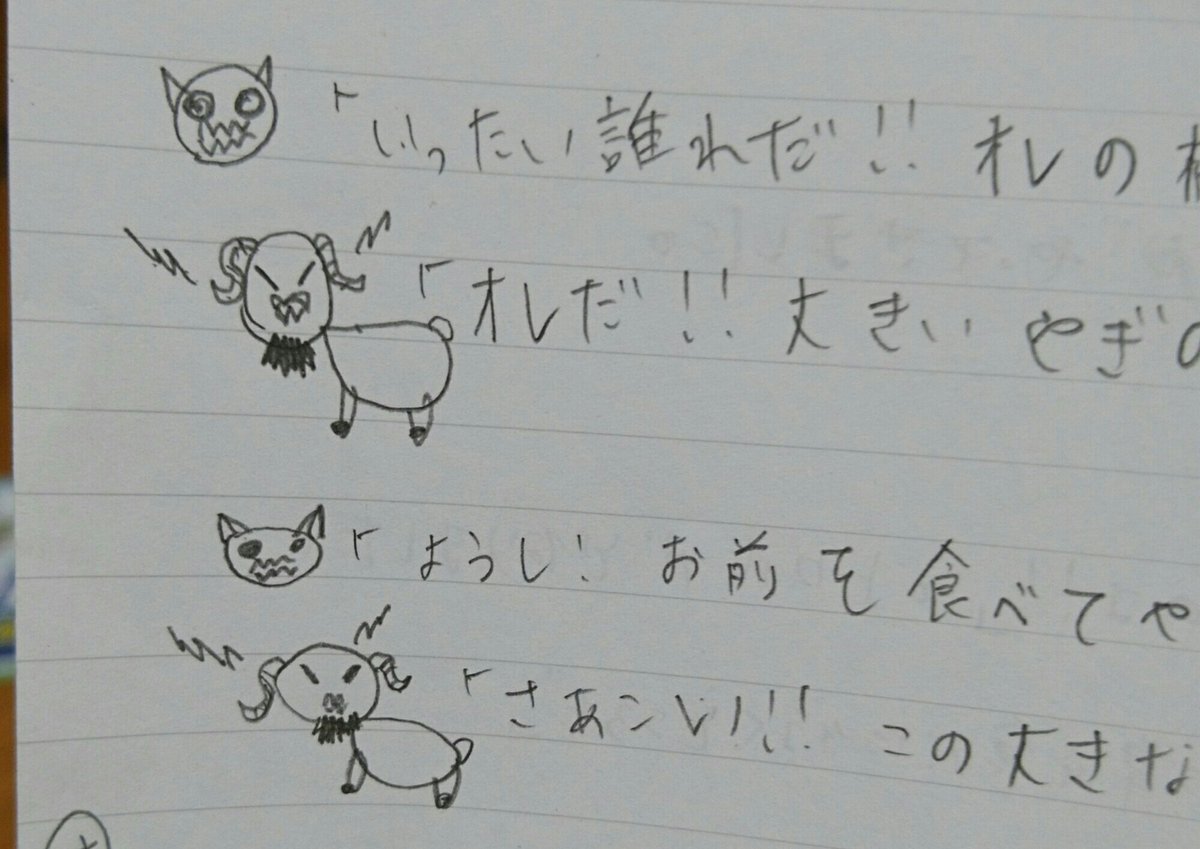 「いったい誰れだ!! オレの
「オレだ!! 大きいやぎの
「ようし! お前を食べてや
「さあこい!!! この大きな